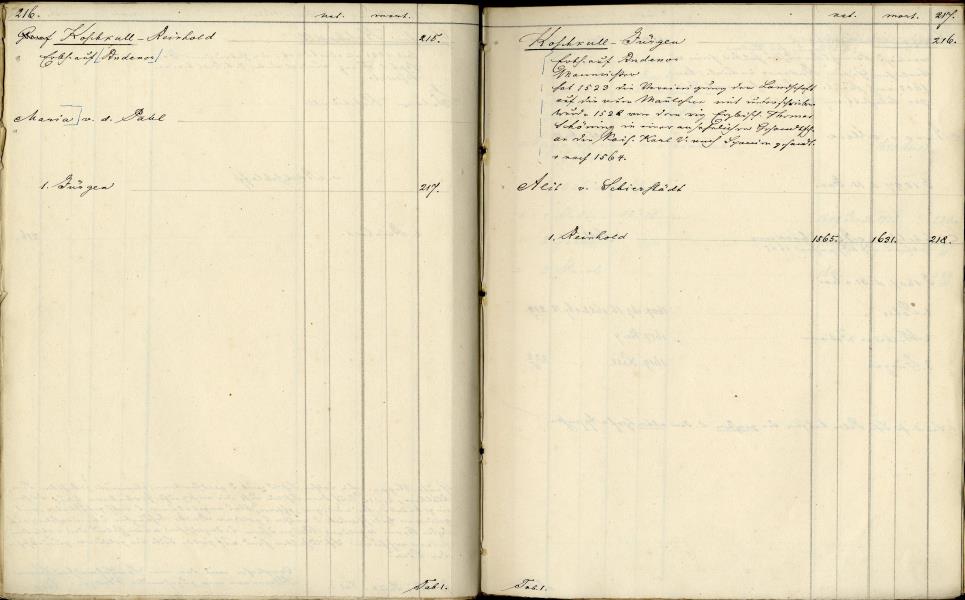 216. nat. mort.
Graf Koskull - Reinhold 215.
Erbh. auf Andenos
Maria v. d. Pahl
1. Jürgen 217.
Tab 1.
nat. mort. 217.
Koskull - Jürgen 216.
Erbh. auf Andenos
Mannrichter
hat 1523 die Vereinigung der Landschaft
auf die
wurde 1526 von dem rig. Erzbisch. Thomas
Schöning in einer ansehnlichen Gesandtsch.
an den Kais. Karl V. nach Spanien gesandt.
+ nach 1564.
Alit v. Schierstädt
1. Reinhold 1565. 1631. 218.
Tab 1.